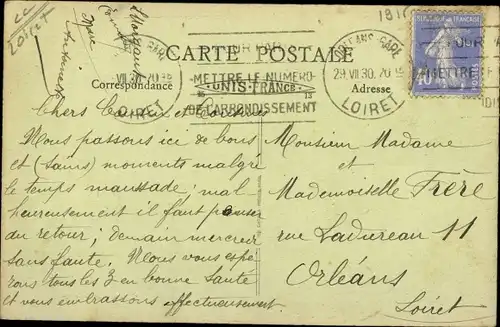 cc
Loiret
CARTE POSTALE
Correspondance
Adresse
ORLEANS-GARE
29.VII.30.
LOIRET
POUR PARIS
METTRE LE NUMERO
DE L'ARRONDISSEMENT
RÉPUBLIQUE FRANÇAISE
METTRE
Chers Cousins et Cousines
Nous passons ici de bons
et (sains) moments malgré
le temps maussade; mal-
heureusement il faut penser
au retour; demain mercredi
sans faute. Nous vous espé-
rons tous les 3 en bonne santé
et vous embrassons affectueusement.
Monsieur Madame
et
Mademoiselle Frère
rue Ladureau 11
Orléans
Loiret